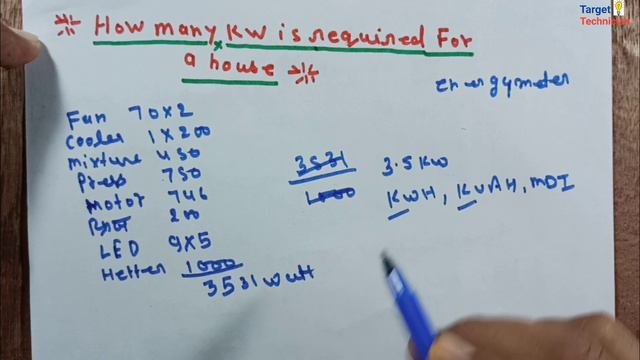 How many KW is required For
a house
Energymeter
Fan 70x2
Cooler 1x200
mixture 450
Press 750
Motor 746
200
LED 9x5
Hetter 1000
3531 watt
3531
1000
3.5 KW
KWH, KVAH, MDI
Target